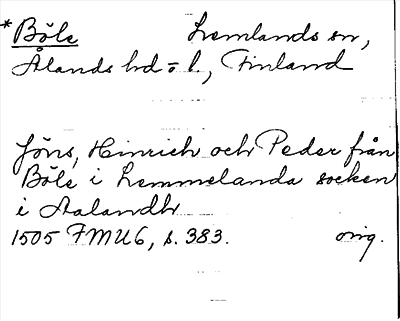 *Böle Lemlands sn,
Ålands hd o. l., Finland
Jöns, Hinrich och Peder från
Böle i Lemmelanda socken
i Aalandh
1505 FMU6, s. 383. orig.